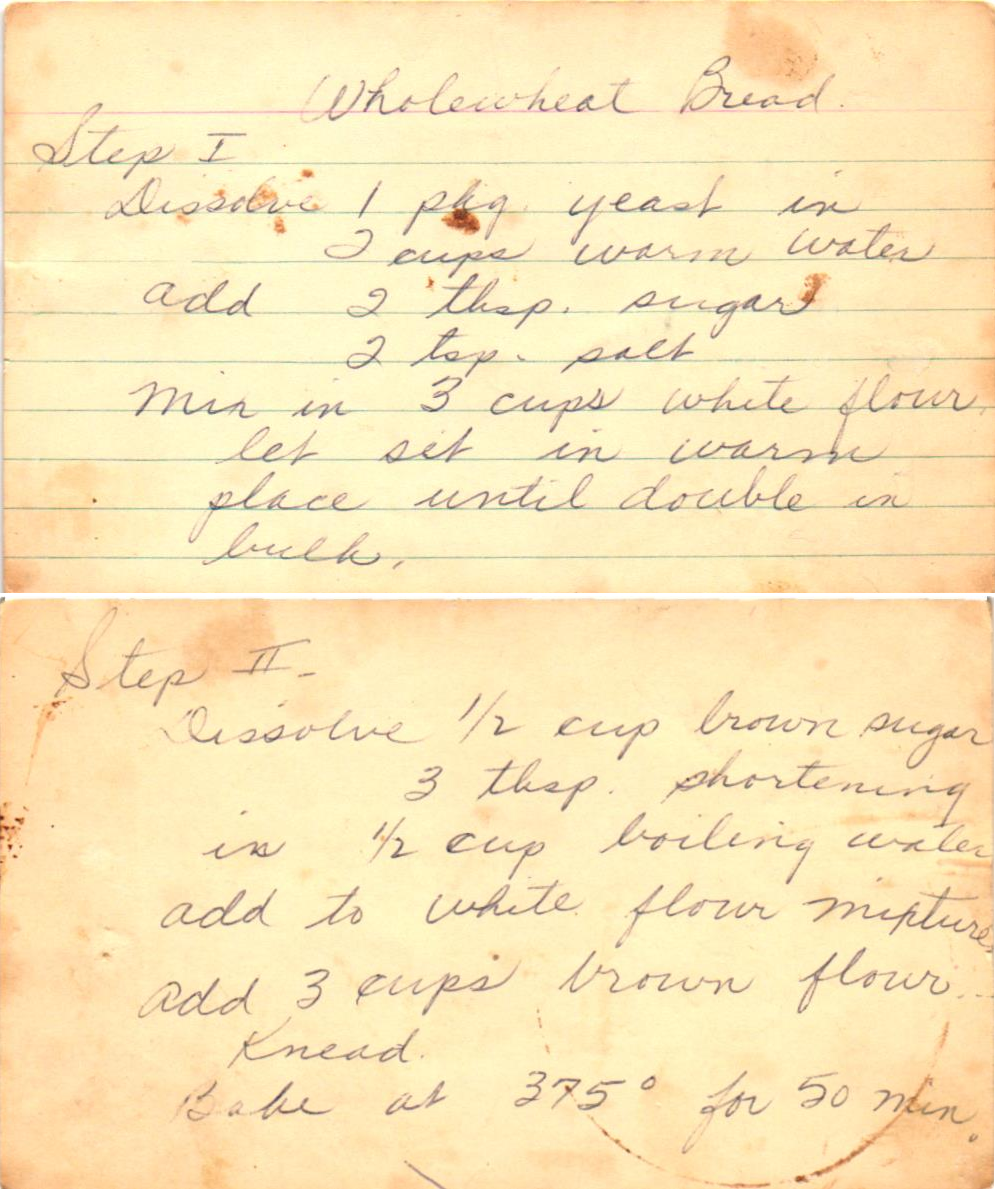 Wholewheat Bread.
Step I
Dissolve 1 pkg. yeast in
2 cups warm water
add 2 tbsp. sugar
2 tsp. salt
Mix in 3 cups white flour.
let set in warm
place until double in
bulk.
Step II-
Dissolve 1/2 cup brown sugar
3 tbsp. shortening
in 1/2 cup boiling water
add to white flour mixture.
add 3 cups brown flour...
Knead.
Bake at 375° for 50 min.